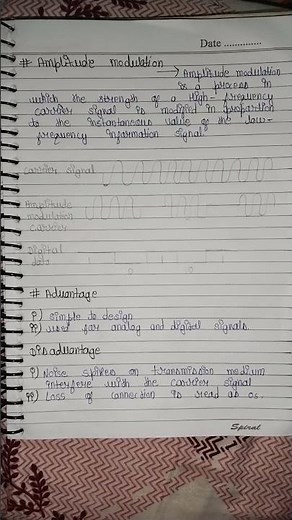 Date ..............
# Amplitude modulation
→ Amplitude modulation
is a process in
which the strength of a High-frequency
carrier signal is modified in proportion
to the instantaneous value of the low-
frequency information signal.
Carrier signal
Amplitude
modulation
carrier
Digital
data
0 0
# Advantage
i) simple to design
ii) used for analog and digital signals.
Disadvantage
i) Noise spikes on transmission medium
interfere with the carrier signal
ii) Loss of connection is read as 0s.
Spiral